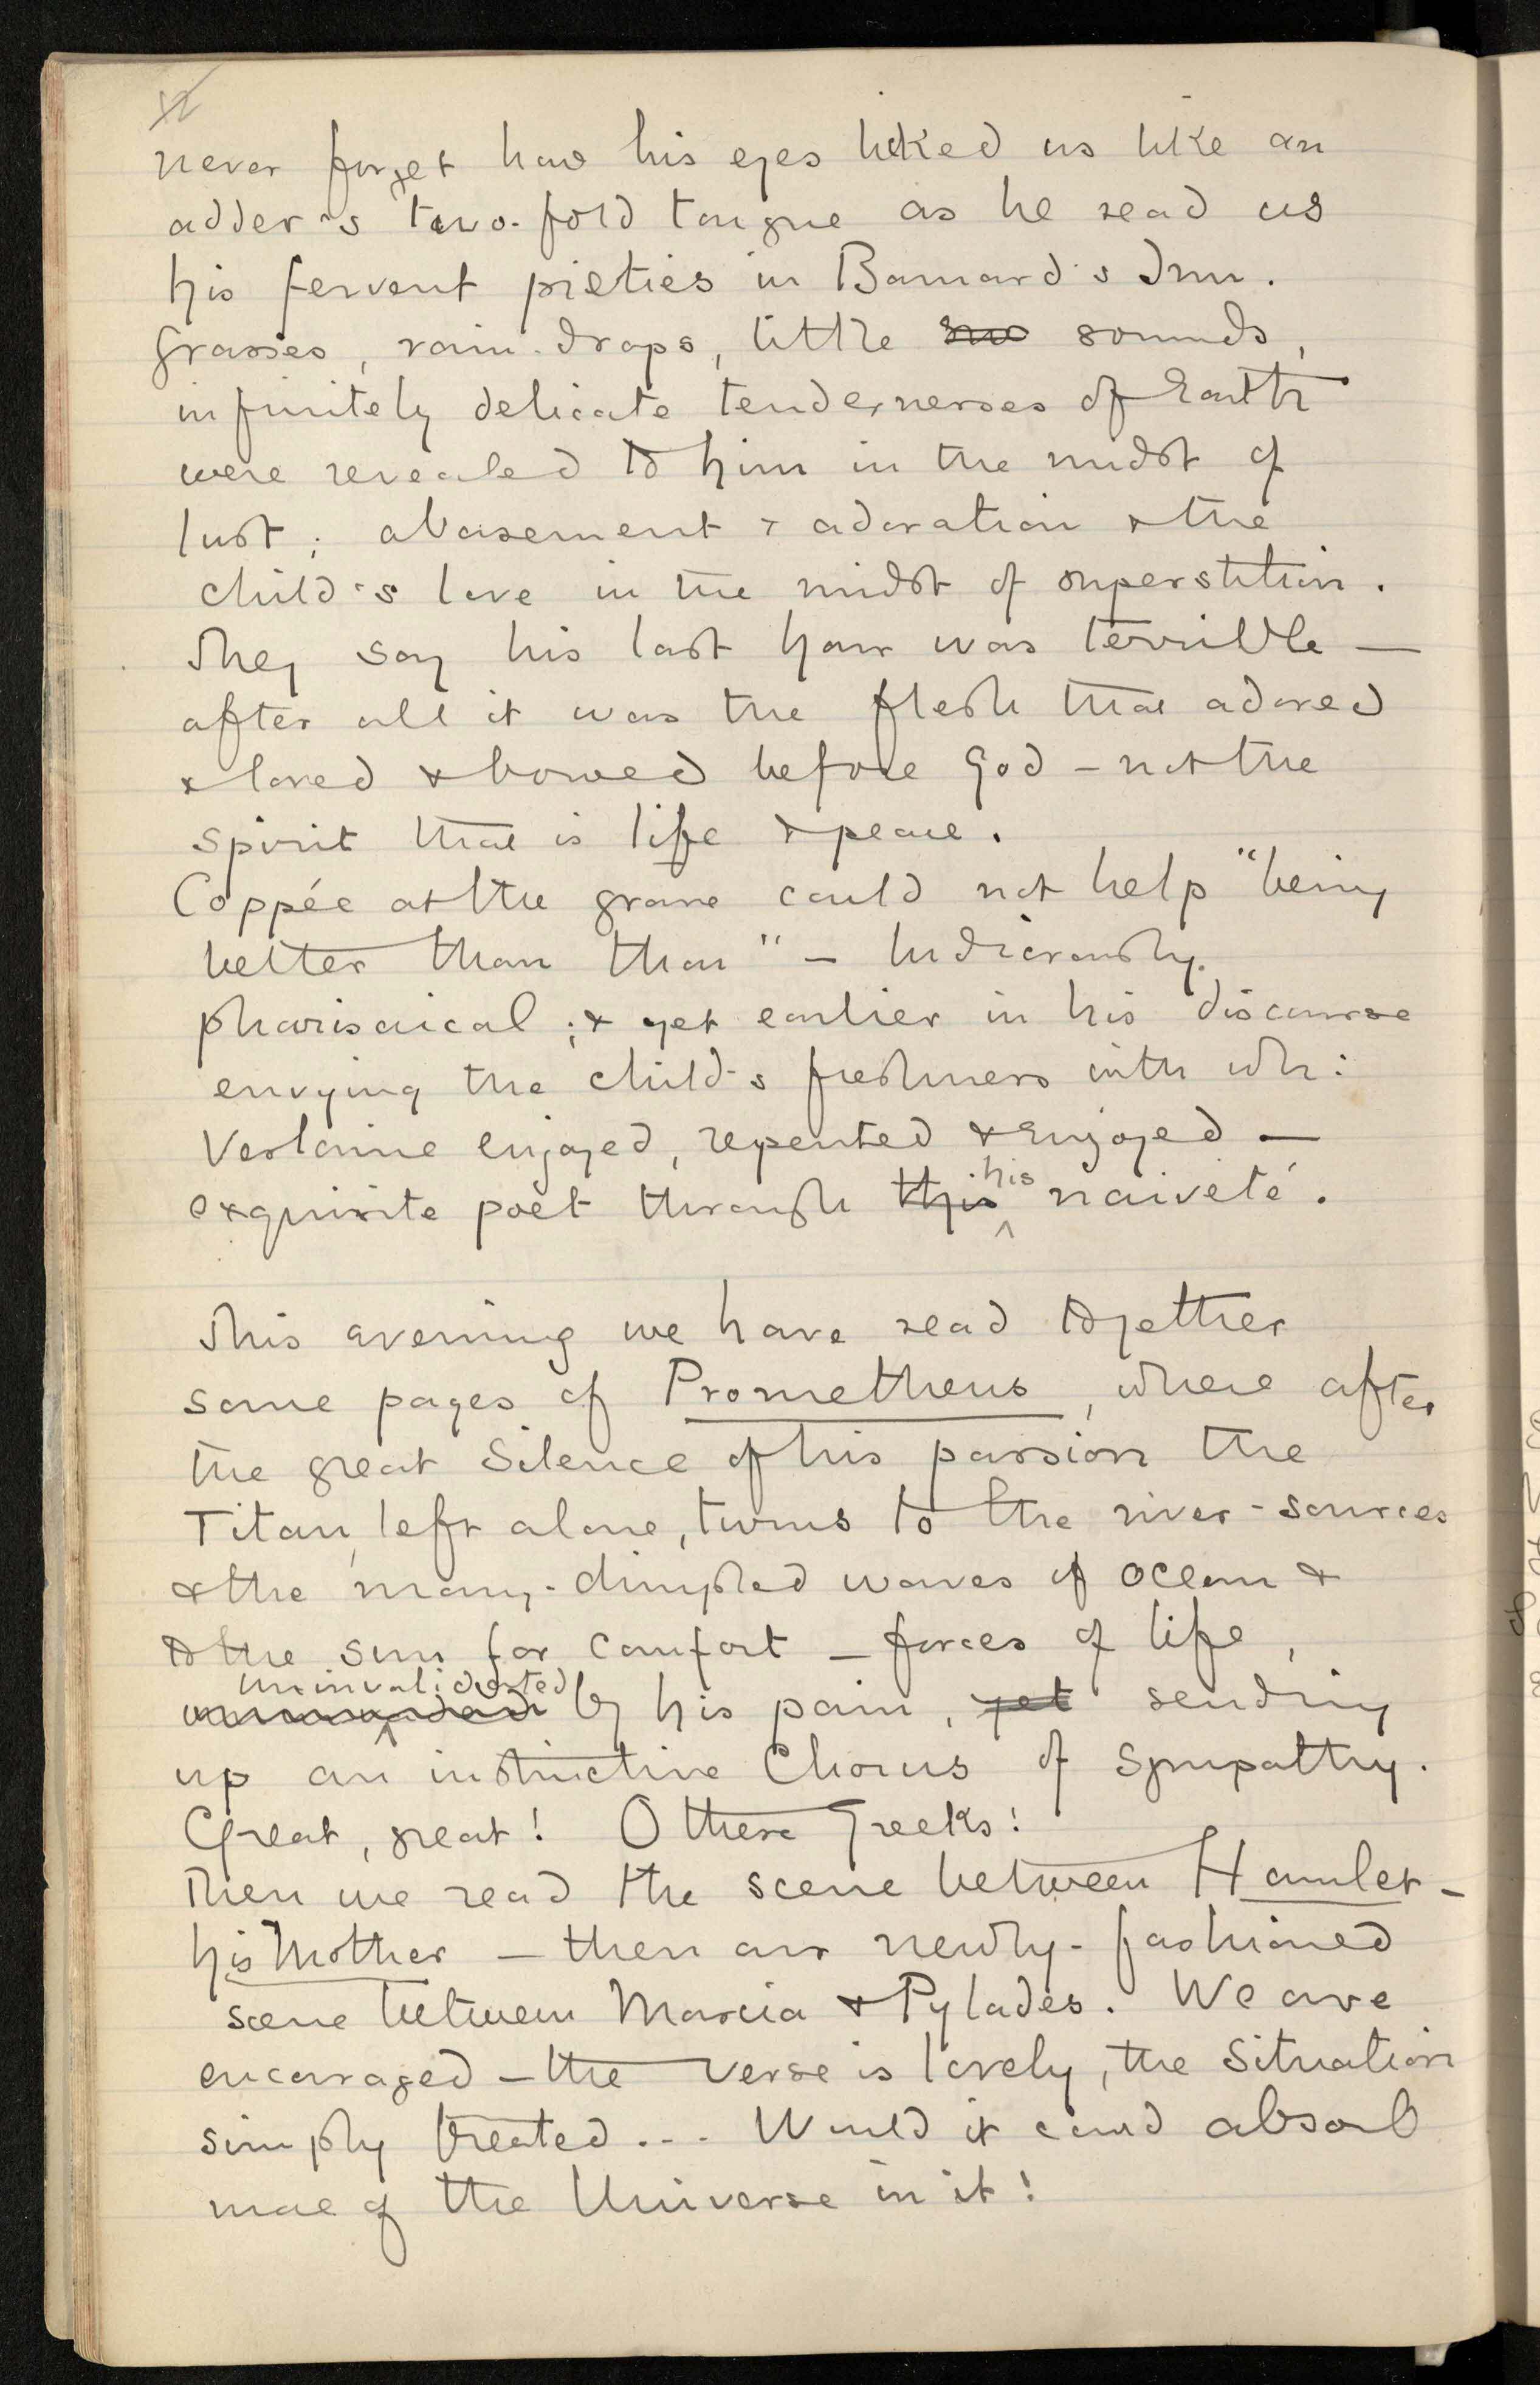 never forget how his eyes licked us like an
adder's two-fold tongue as he read us
his fervent pieties in Barnard's Inn.
Grasses, rain-drops, little sounds,
infinitely delicate tendernesses of Earth
were revealed to him in the midst of
lust; abasement & adoration & the
child's love in the midst of superstition.
They say his last hour was terrible —
after all it was the flesh that adored
& loved & bowed before God – not the
spirit that is life & peace.
Coppée at the grave could not help "being
better than thou" – ludicrously
pharisaical; & yet earlier in his discourse
envying the child's freshness with wh:
Verlaine enjoyed, repented & enjoyed —
exquisite poet through this his naiveté.
This evening we have read together
some pages of Prometheus, where after
the great Silence of his passion the
Titan, left alone, turns to the river-sources
& the many-dimpled waves of ocean &
to the sun for comfort – forces of life,
uninvalidated
by his pain, yet sending
up an instinctive Chorus of sympathy.
Great, great! O these Greeks!
Then we read the scene between Hamlet –
his Mother – then our newly-fashioned
scene between Marcia & Pylades. We are
encouraged – the verse is lovely, the situation
simply treated... Would it could absorb
more of the Universe in it!